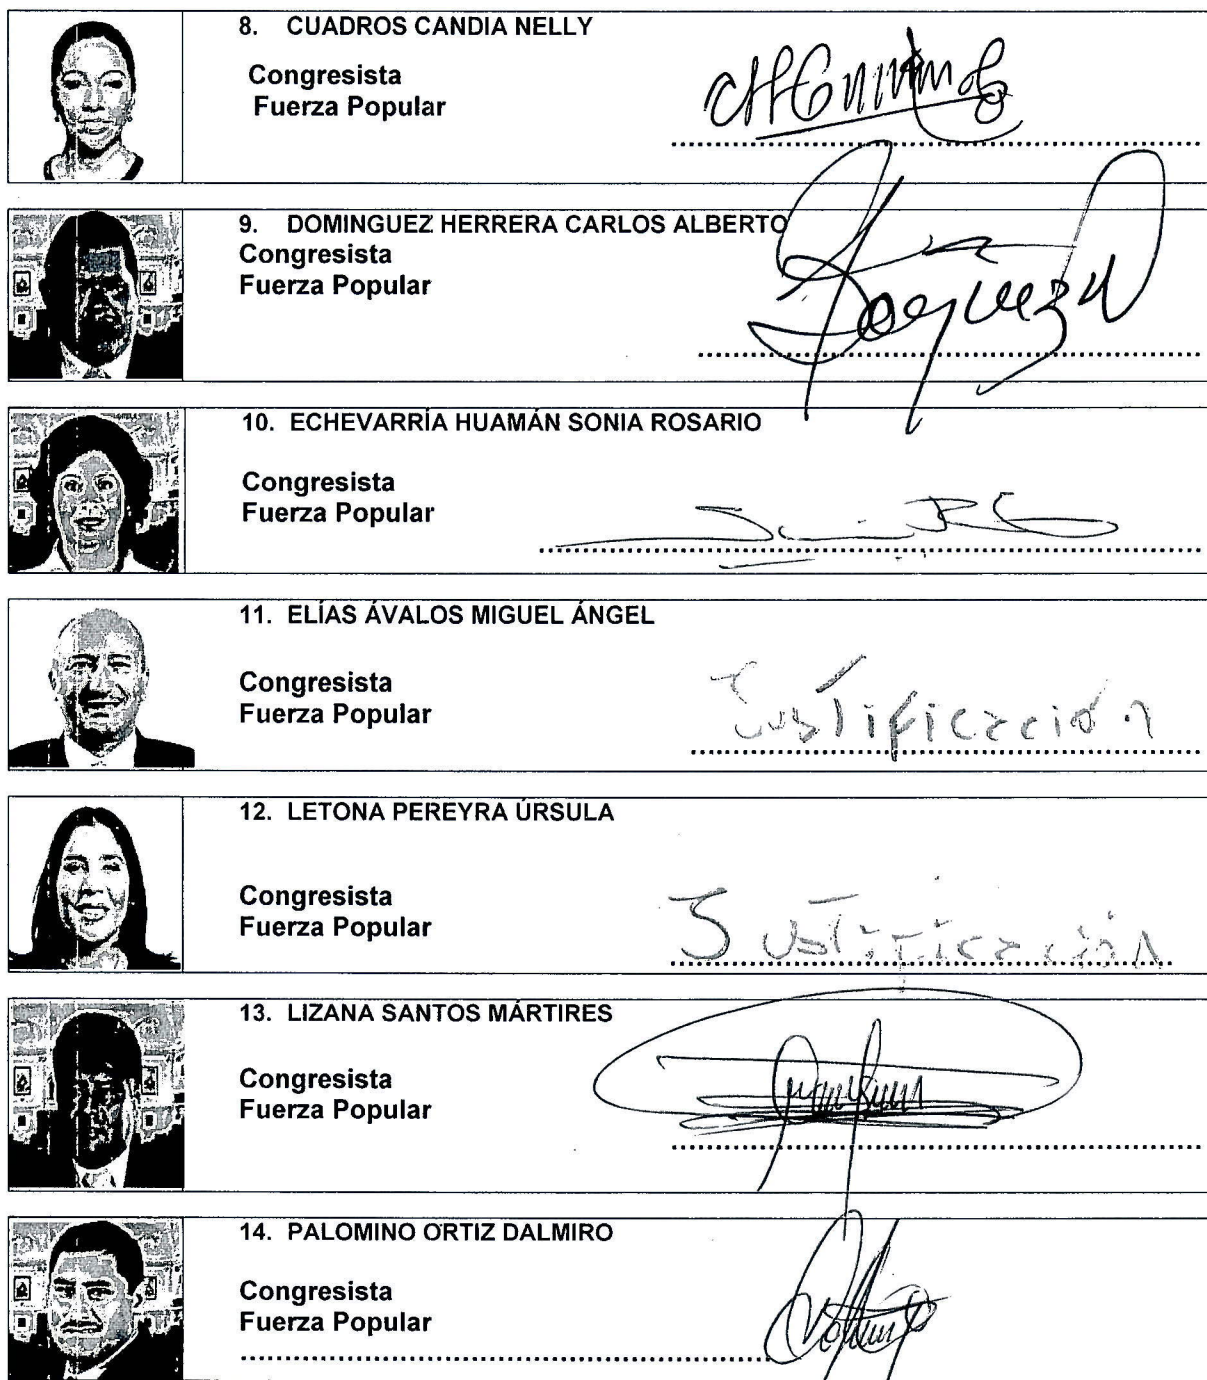 8. CUADROS CANDIA NELLY
Congresista
Fuerza Popular
9. DOMINGUEZ HERRERA CARLOS ALBERTO
Congresista
Fuerza Popular
10. ECHEVARRÍA HUAMÁN SONIA ROSARIO
Congresista
Fuerza Popular
11. ELÍAS ÁVALOS MIGUEL ÁNGEL
Congresista
Fuerza Popular
Justificación
12. LETONA PEREYRA ÚRSULA
Congresista
Fuerza Popular
Justificación
13. LIZANA SANTOS MÁRTIRES
Congresista
Fuerza Popular
14. PALOMINO ORTIZ DALMIRO
Congresista
Fuerza Popular